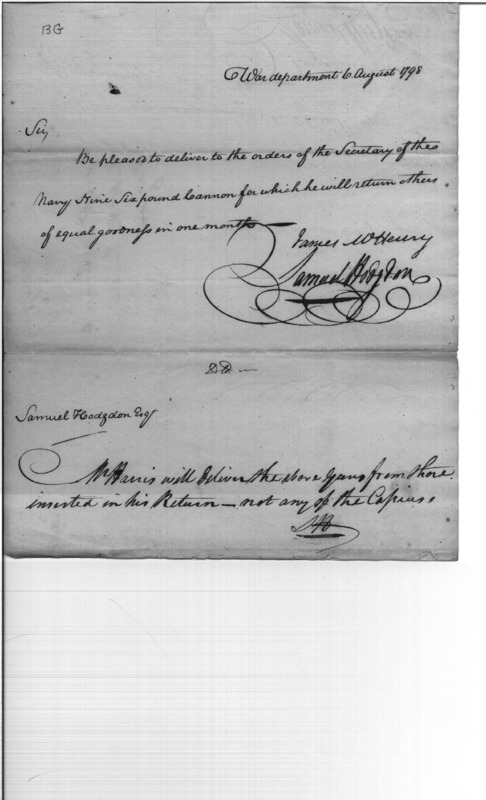 BG
War department 6 August 1798
Sir,
Be pleased to deliver to the orders of the Secretary of the
Navy Nine Six pound Cannon for which he will return others
of equal goodness in one month
James McHenry
Samuel Hodgdon
Samuel Hodgdon Esqr
Mr Harris will deliver the above Guns from those
inserted in his Return — not any of the
SH